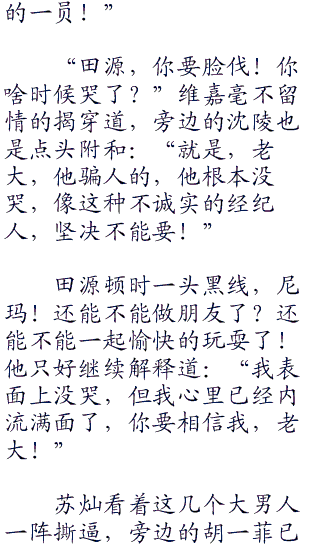 的一员！”
“田源，你要脸伐！你
啥时候哭了？”维嘉毫不留
情的揭穿道，旁边的沈陵也
是点头附和：“就是，老
大，他骗人的，他根本没
哭，像这种不诚实的经纪
人，坚决不能要！”
田源顿时一头黑线，尼
玛！还能不能做朋友了？还
能不能一起愉快的玩耍了！
他只好继续解释道：“我表
面上没哭，但我心里已经内
流满面了，你要相信我，老
大！”
苏灿看着这几个大男人
一阵撕逼，旁边的胡一菲已